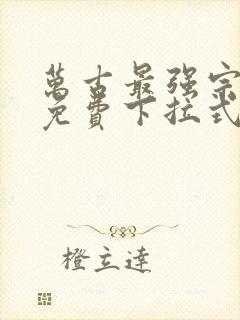 萬古最强宗
免費下拉式
橙立達